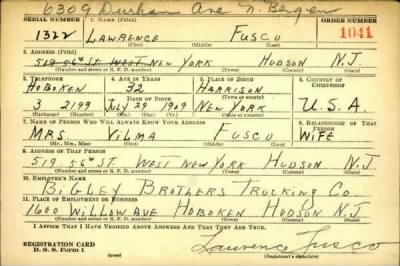 6309 Durham Ave N. Bergen
SERIAL NUMBER 1. NAME (Print) ORDER NUMBER
1322 LAWRENCE FUSCO 1041
(First) (Middle) (Last)
2. ADDRESS (Print)
519 56th ST. WEST NEW YORK HUDSON N.J.
(Number and street or R. F. D. number) (Town) (County) (State)
3. TELEPHONE 4. AGE IN YEARS 5. PLACE OF BIRTH 6. COUNTRY OF CITIZENSHIP
HOBOKEN 32 HARRISON
DATE OF BIRTH (Town or county)
3 2199 JULY 29 1909 NEW YORK U.S.A.
(Exchange) (Number) (Mo.) (Day) (Yr.) (State or country)
7. NAME OF PERSON WHO WILL ALWAYS KNOW YOUR ADDRESS 8. RELATIONSHIP OF THAT PERSON
MRS. VILMA FUSCO WIFE
(Mr., Mrs., Miss) (First) (Middle) (Last)
9. ADDRESS OF THAT PERSON
519. 56th ST. WEST NEW YORK HUDSON N.J
(Number and street or R. F. D. number) (Town) (County) (State)
10. EMPLOYER'S NAME
BIGLEY BROTHERS TRUCKING CO.
11. PLACE OF EMPLOYMENT OR BUSINESS
1600 WILLOW AVE HOBOKEN HUDSON N.J
(Number and street or R. F. D. number) (Town) (County) (State)
I AFFIRM THAT I HAVE VERIFIED ABOVE ANSWERS AND THAT THEY ARE TRUE.
REGISTRATION CARD
D. S. S. Form 1 (over) Lawrence Fusco
(Registrant's signature)